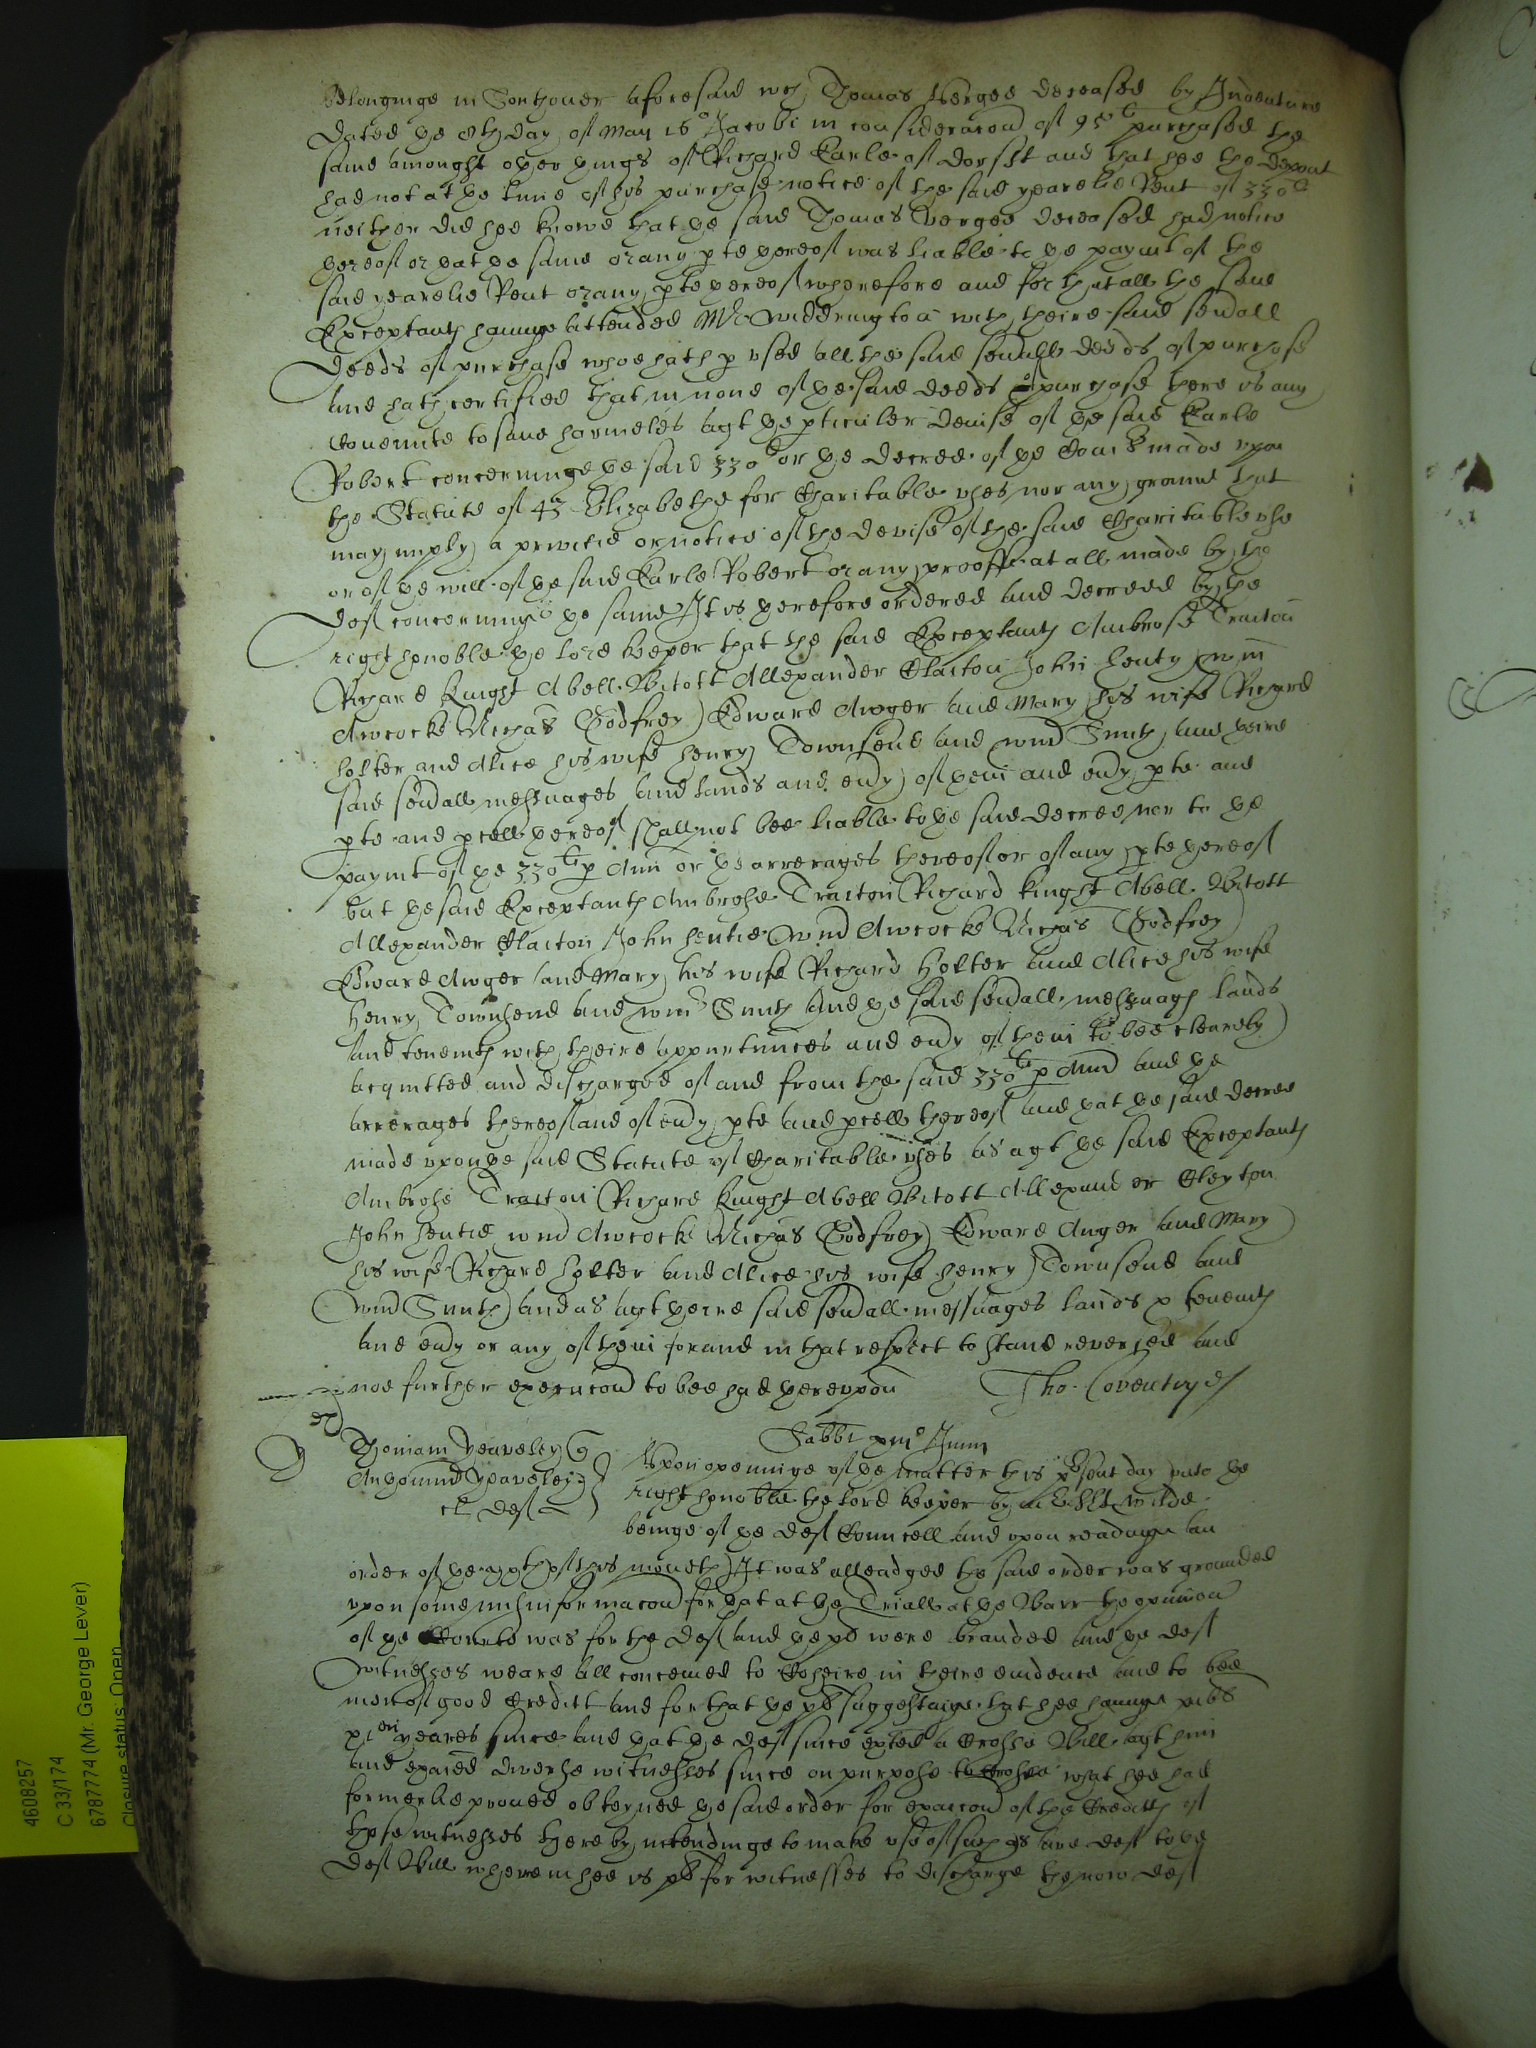 belonginge in Southouer aforesaid wch Thomas Verges deceased by Indenture
dated ye 8th day of May 16o Jacobi in consideracon of 95li purchased the
same amonght other things of Richard Earle of Dorsst and that hee the defendt
had not at ye time of his purchase notice of the said yearelie Rent of 330li
neither did hee knowe that ye said Thomas Verges deceased had notice
thereof or yat ye same or any pte thereof was liable to ye paymt of the
said yearelie Rent or any pte thereof wherefore and for that all the said
Exceptants haueing attended Mr Widdrington with theire said seuall
deeds of purchase whoe hath pvsed all the said seuall deeds of purchase
and hath certified that in none of ye said deeds of purchase there is any
couennte to saue harmeles agt ye pticuler deuise of ye said Earle
Robert concerninge ye said 330li or ye decree of ye Comrs made vpon
the Statute of 43 Elizabethe for Charitable vses nor any graunt that
may imply a privitie or notice of the devise of the said Charitable vse
or of ye will of ye said Earle Robert or any prooffe at all made by the
deft concerning ye same It is therefore ordered and decreed by the
right honoble ye lord keeper that the said Exceptants Ambrose Traiton
Richard Knight Abell Bitott Allexander Claiton John henty wm
Awcocke Nichas Godfrey Edward Awger and Mary his wife Richard
holter and Alice his wife henry Townsend and wm Smith and theire
said seuall messuages and lands and eudy of them and eudy pte and
pte and pcell thereof shall not bee liable to ye said decree nor to ye
paymt of ye 330li p Ann or ye arrerages thereof or of any pte thereof
but ye said Exceptants Ambrose Traiton Richard Knight Abell Bitott
Allexander Claiton John hentie wm Awcocke Nichas Godfrey
Edward Awger and Mary his wife Richard Holter and Alice his wife
Henry Townsend and wm Smith and ye said seuall messuags lands
and tenemts with theire appurtunces and eudy of them to bee clearely
acquitted and discharged of and from the said 330li p Ann and ye
arrerages thereof and of eudy pte and pcell thereof and yat ye said decree
made vpon ye said Statute of Charitable vses as agt ye said Exceptants
Ambrose Traiton Richard Knight Abell Bitott Allexander Cleyton
John hentie wm Awcocke Nichas Godfrey Edward Auger and Mary
his wife Richard holter and Alice his wife henry Townsend and
wm Smith and as agt theire said seuall messuages lands & tenemts
and eudy or any of them for and in that respect to stand reversed and
noe further execucon to bee had therevpon Tho: Coventrye
Sabbti primo Junii
Thomam Yeaveley
Yeaveley
deft
Vpon openninge of ye matter this psent day vnto ye
right honoble the lord keeper by Wilde
beinge of ye deft Councell and vpon readinge an
order of ye of this moneth It was alleadged the said order was grounded
vpon some misinformacon for yat at ye Triall at ye Barr the opinion
of ye Courte was for the deft and ye were branded and ye deft
witnesses weare all conceiued to in theire euidence and to bee
men of good Creditt and for that ye suggestinge that hee haueinge
yeares since and yat ye deft since exted a Crosse Bill agt him
and exaied diverse witnesses since on purpose to Crosse what hee had
formerlie proued obteyned ye said order for exaicon of the Creditts of
these witnesses thereby intendinge to make vse of such as are deft to ye
deft Bill wherein hee is for witnesses to discharge the now deft
4608257
C 33/174
6787774 (Mr. George Lever)
Closure status: Open